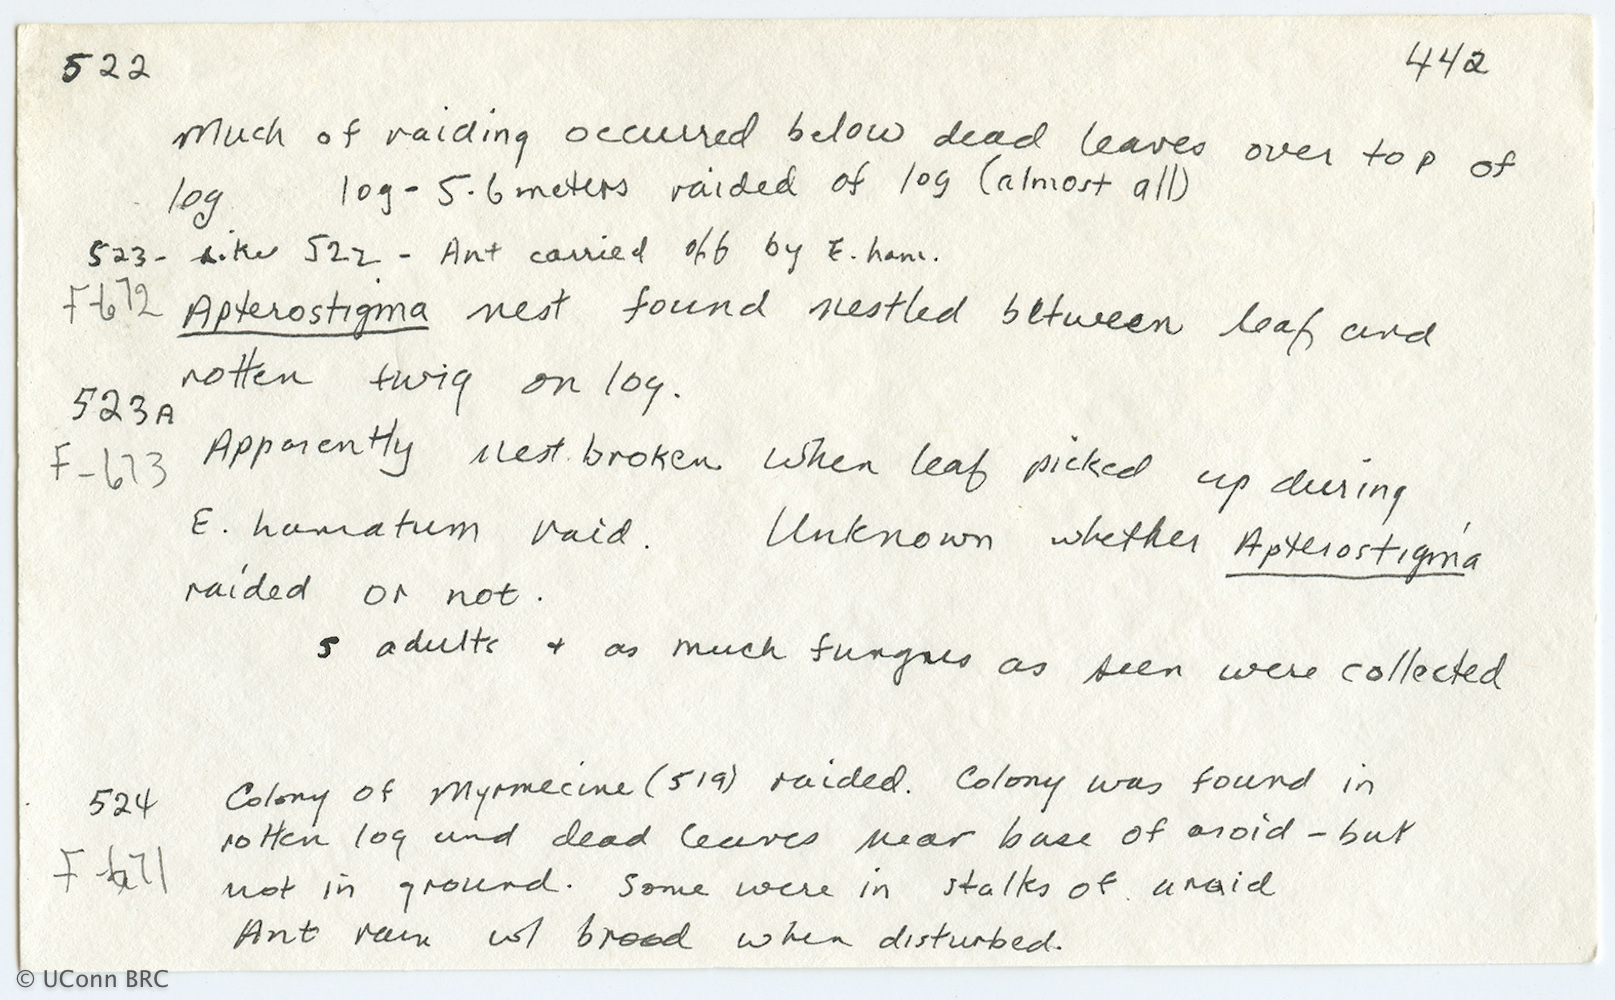 522 442
Much of raiding occurred below dead leaves over top of
log log - 5.6 meters raided of log (almost all)
523 - like 522 - Ant carried off by E. ham.
F-672 Apterostigma nest found nestled between leaf and
rotten twig on log.
523A
F-673 Apparently nest broken when leaf picked up during
E. hamatum raid. Unknown whether Apterostigma
raided or not.
5 adults + as much fungus as seen were collected
524 Colony of Myrmecine (519) raided. Colony was found in
rotten log und dead leaves near base of aroid - but
F-671 not in ground. Some were in stalks of aroid
Ant ran w/ brood when disturbed.
© UConn BRC